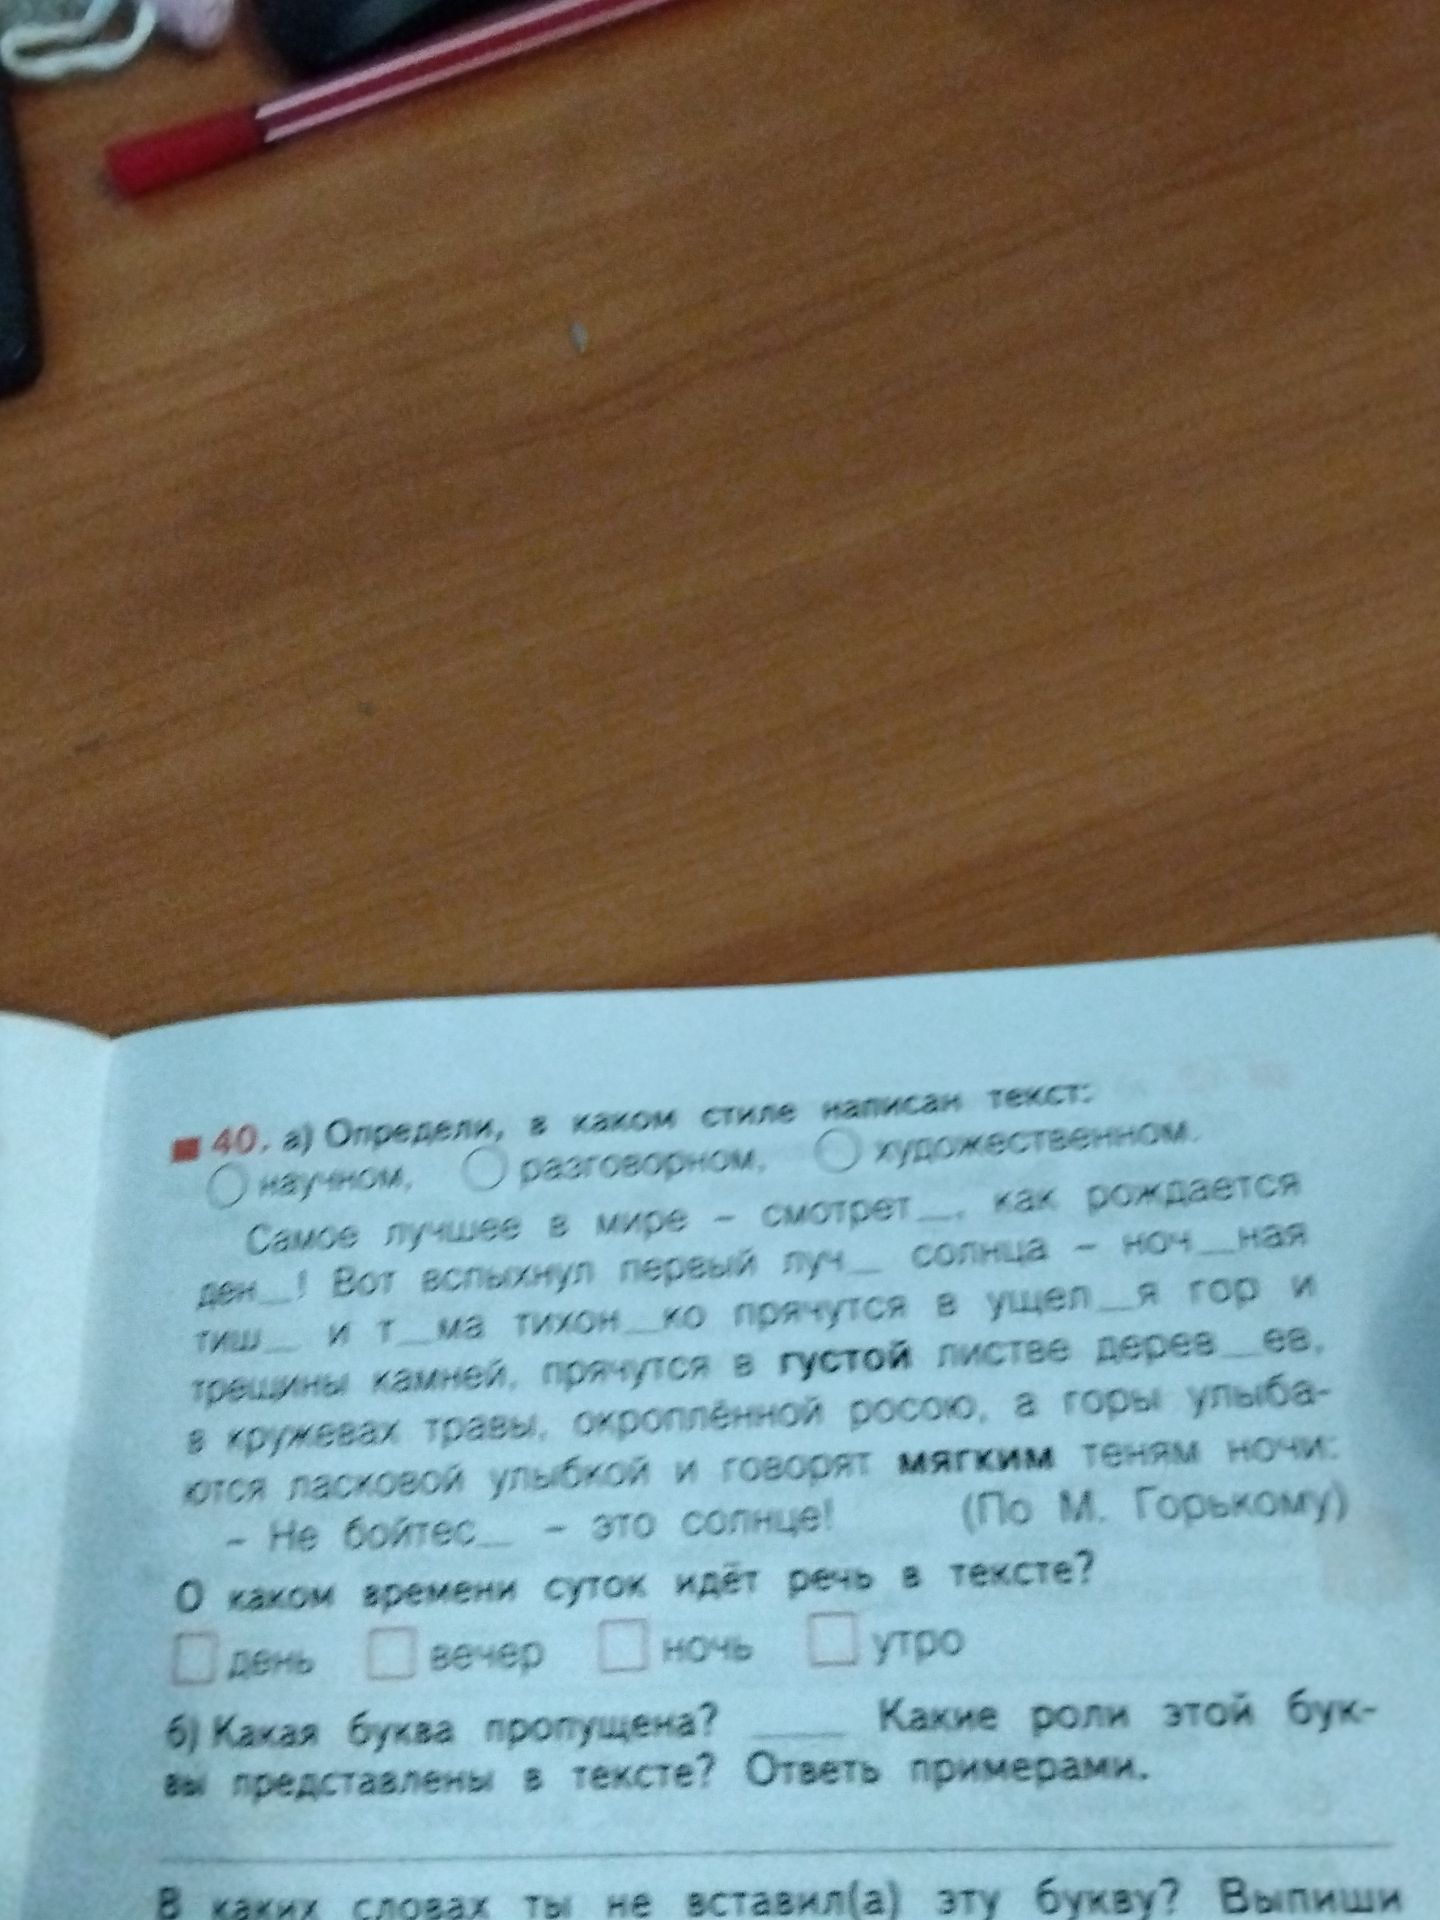 40. а) Определи, в каком стиле написан текст:
научном, разговорном, художественном.
Самое лучшее в мире – смотрет__, как рождается
ден__! Вот вспыхнул первый луч__ солнца – ноч__ная
тиш__ и т__ма тихон__ко прячутся в ущел__я гор и
трещины камней, прячутся в густой листве дерев__ев,
в кружевах травы, окроплённой росою, а горы улыба-
ются ласковой улыбкой и говорят мягким теням ночи:
– Не бойтес__ – это солнце! (По М. Горькому)
О каком времени суток идёт речь в тексте?
день вечер ночь утро
б) Какая буква пропущена? ____ Какие роли этой бук-
вы представлены в тексте? Ответь примерами.
В каких словах ты не вставил(а) эту букву? Выпиши